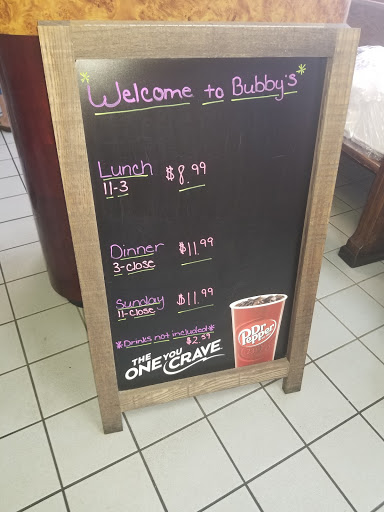 *Welcome to Bubby's*
Lunch $8.99
11-3
Dinner $11.99
3-close
Sunday $11.99
11-close
*Drinks not included*
$2.59
THE ONE YOU CRAVE
Dr Pepper